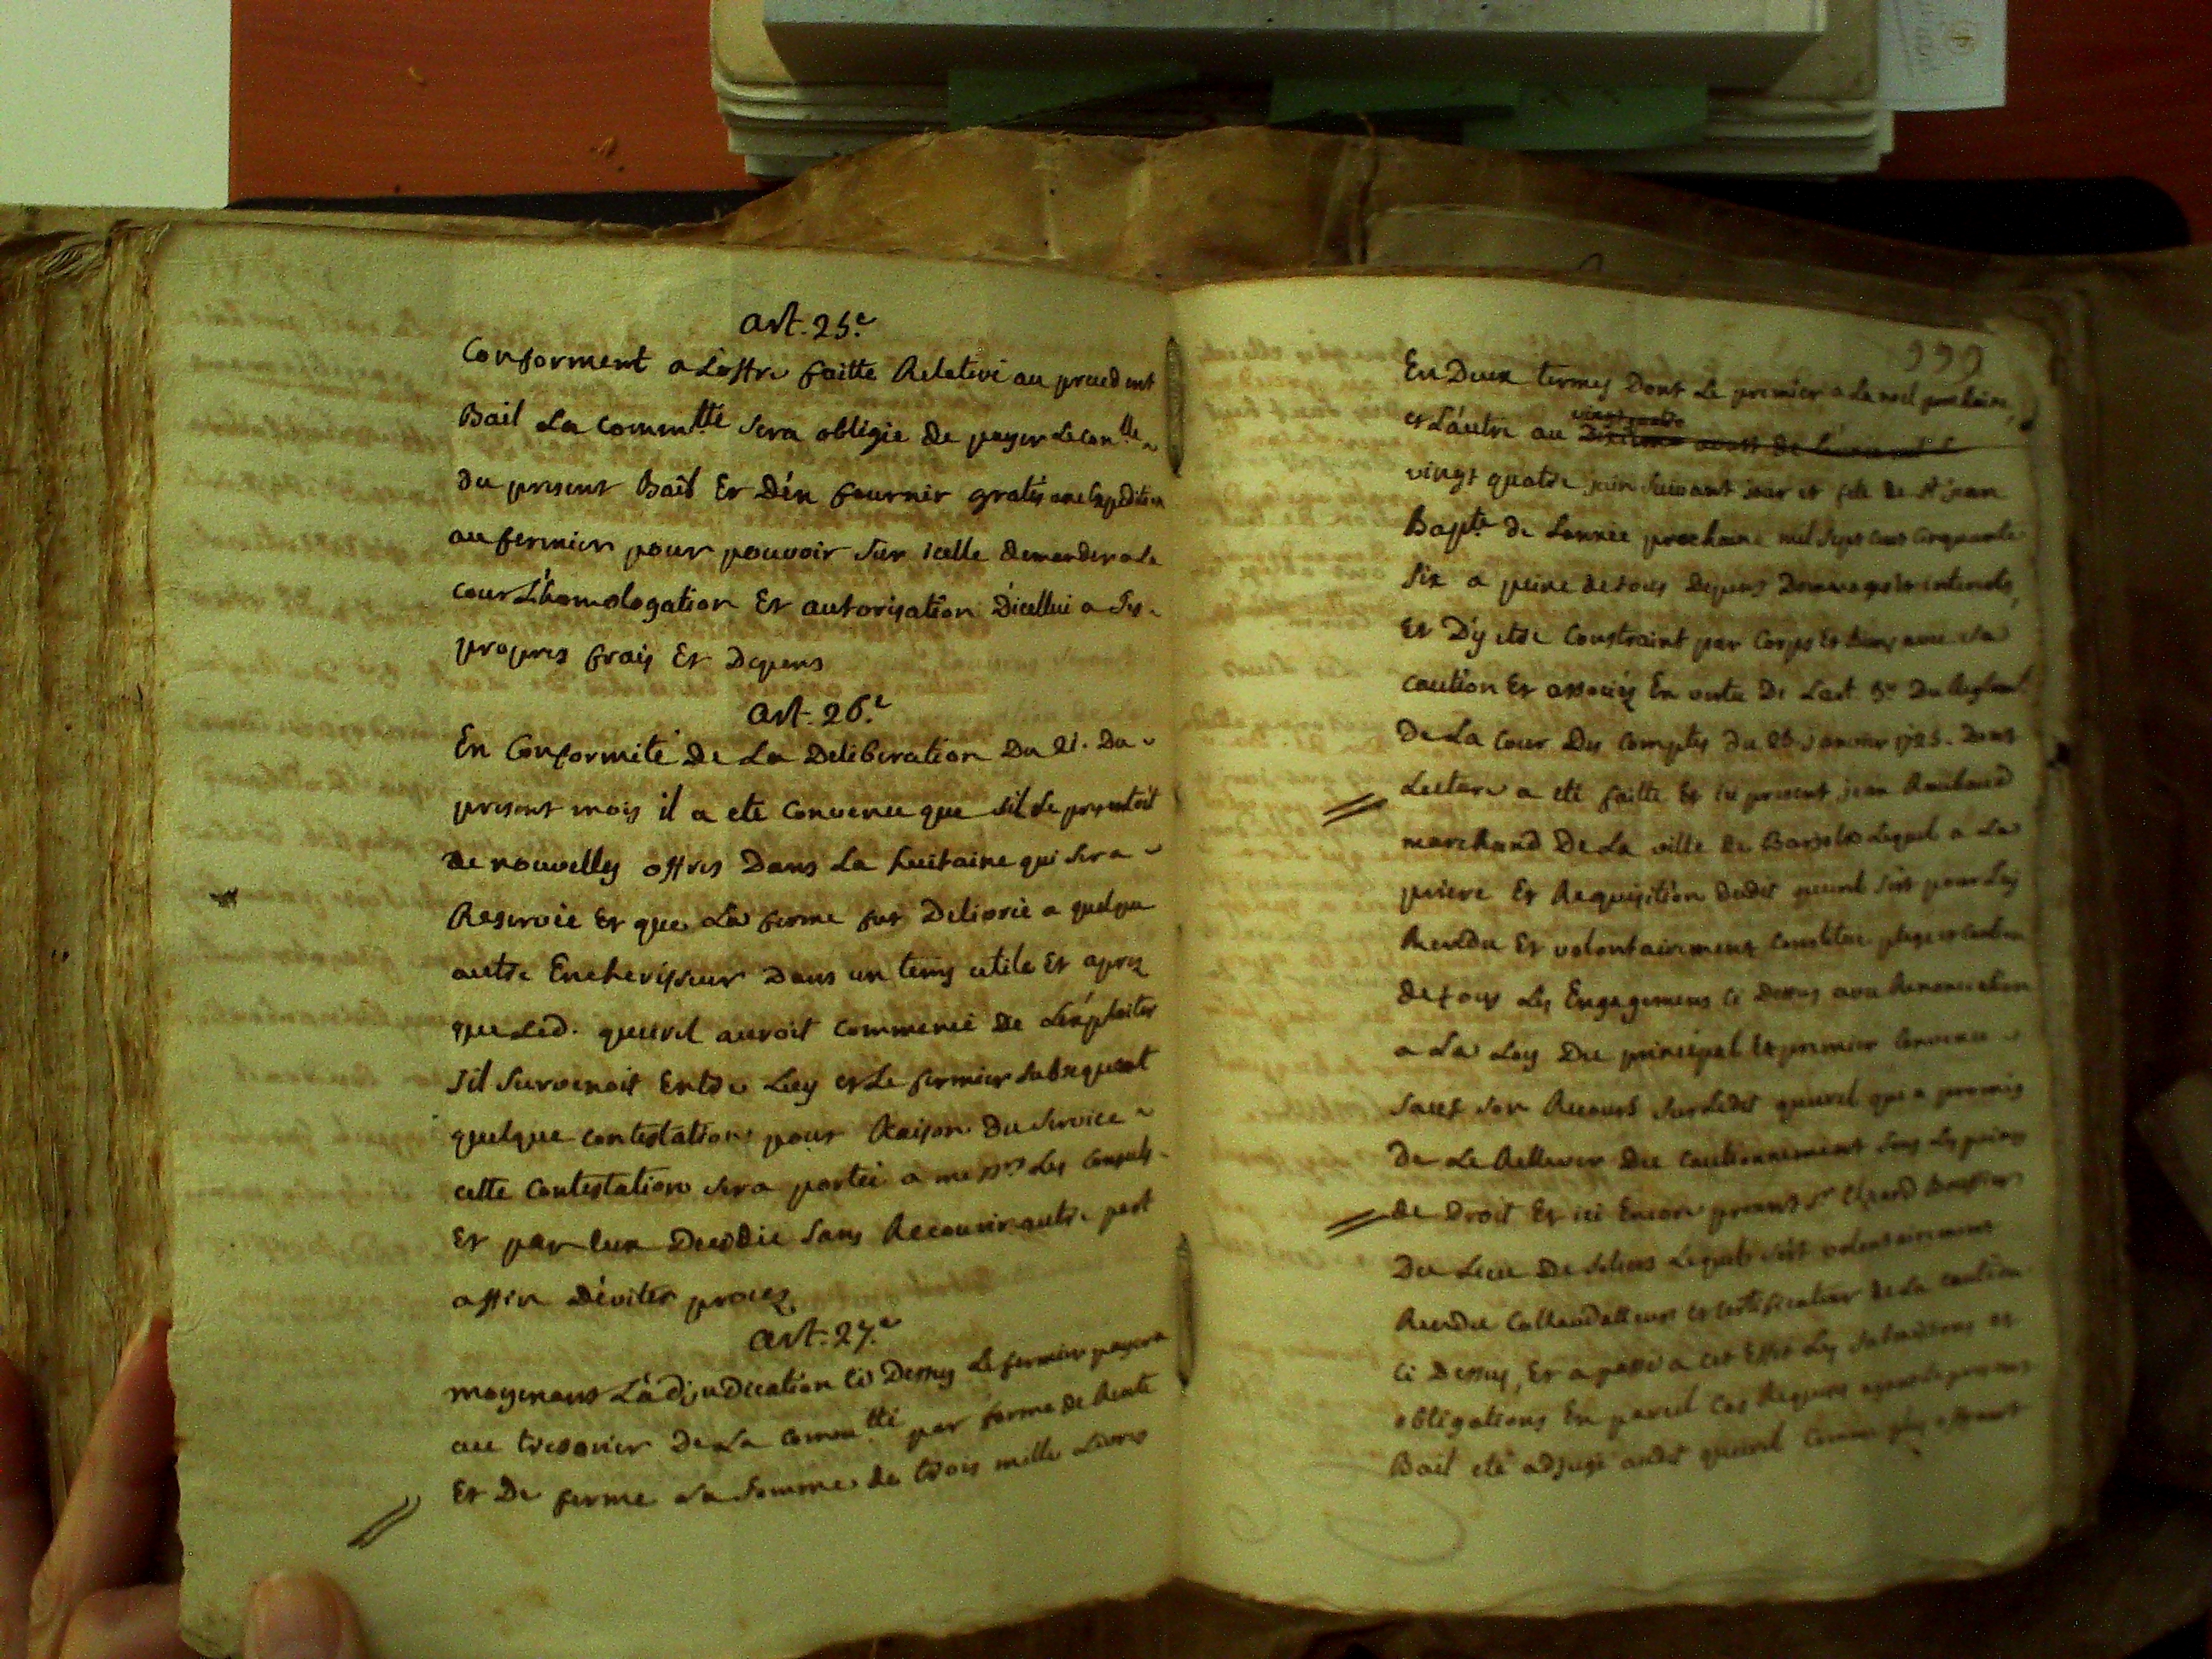 art. 25.e
Conforment a Loffre faitte Relative au precedent
Bail La Commtté sera obligée de payer Le conlle
du present Bail Et Dén fournir gratis une Expedition
au fermier pour pouvoir sur icelle demander a La
cour L'homologation Et autorisation Dicellui a ses
propres frais Et Depens
art. 26.e
En Conformité De La Deliberation Du 21. Du
present mois il a eté Convenu que sil se presentoit
de nouvelles offres Dans La huitaine qui sera
Reservée Et que La ferme fut Delivrée a quelque
autre Encherisseur Dans un tems utile Et apres
que Led. queirel auroit Commencé De Léxploiter
sil survenoit Entre Luy et Le fermier subsequent
quelque contestation pour Raison Du service
cette Contestation sera portée a messrs Les Consuls
Et par Eux Decidée sans Recourir autre part
affin Déviter procez
art. 27.e
moyenant Ládjudication ci Dessus Le fermier payera
au tresorier De La Commtté par forme de Rente
Et De ferme La somme de trois mille Livres
999
En Deux termes Dont Le premier a La noel prochaine,
et Láutre au
vingt quatre juin suivant jour et fete de st jean
Bapte de Lannée prochaine mil sept cent cinquante
six a peine de tous Depens Dommages et interets,
Et D'y etre Constraint par Corps Et biens avec sa
caution Et associés En vertu De Lart. 5e Du Reglemt
De La Cour Des Comptes du 26 janvier 1725. Dont
Lecture a eté faitte Et ici present jean
marchand De La ville de Barjols Lequel a La
priere Et Requisition dudit queirel sest pour Luy
Rendu Et volontairement Constitué plege et caution
de tous Les Engagemens ci Dessus avec Renonciation
a La Loy Du principal Et premier Convenu
sauf son Recours sur Ledit queirel qui a promis
De Le Rellever Du Cautionnement sous Les peines
de Droit Et ici Encore present sr
Du Lieu De Lequel sest volontairement
Rendu et certificateur de La caution
ci Dessus, Et a passé a cet Effet Les submissions et
obligations En pareil Cas Requises ayant Le present
Bail eté adjugé audit queirel Comme plus offrant